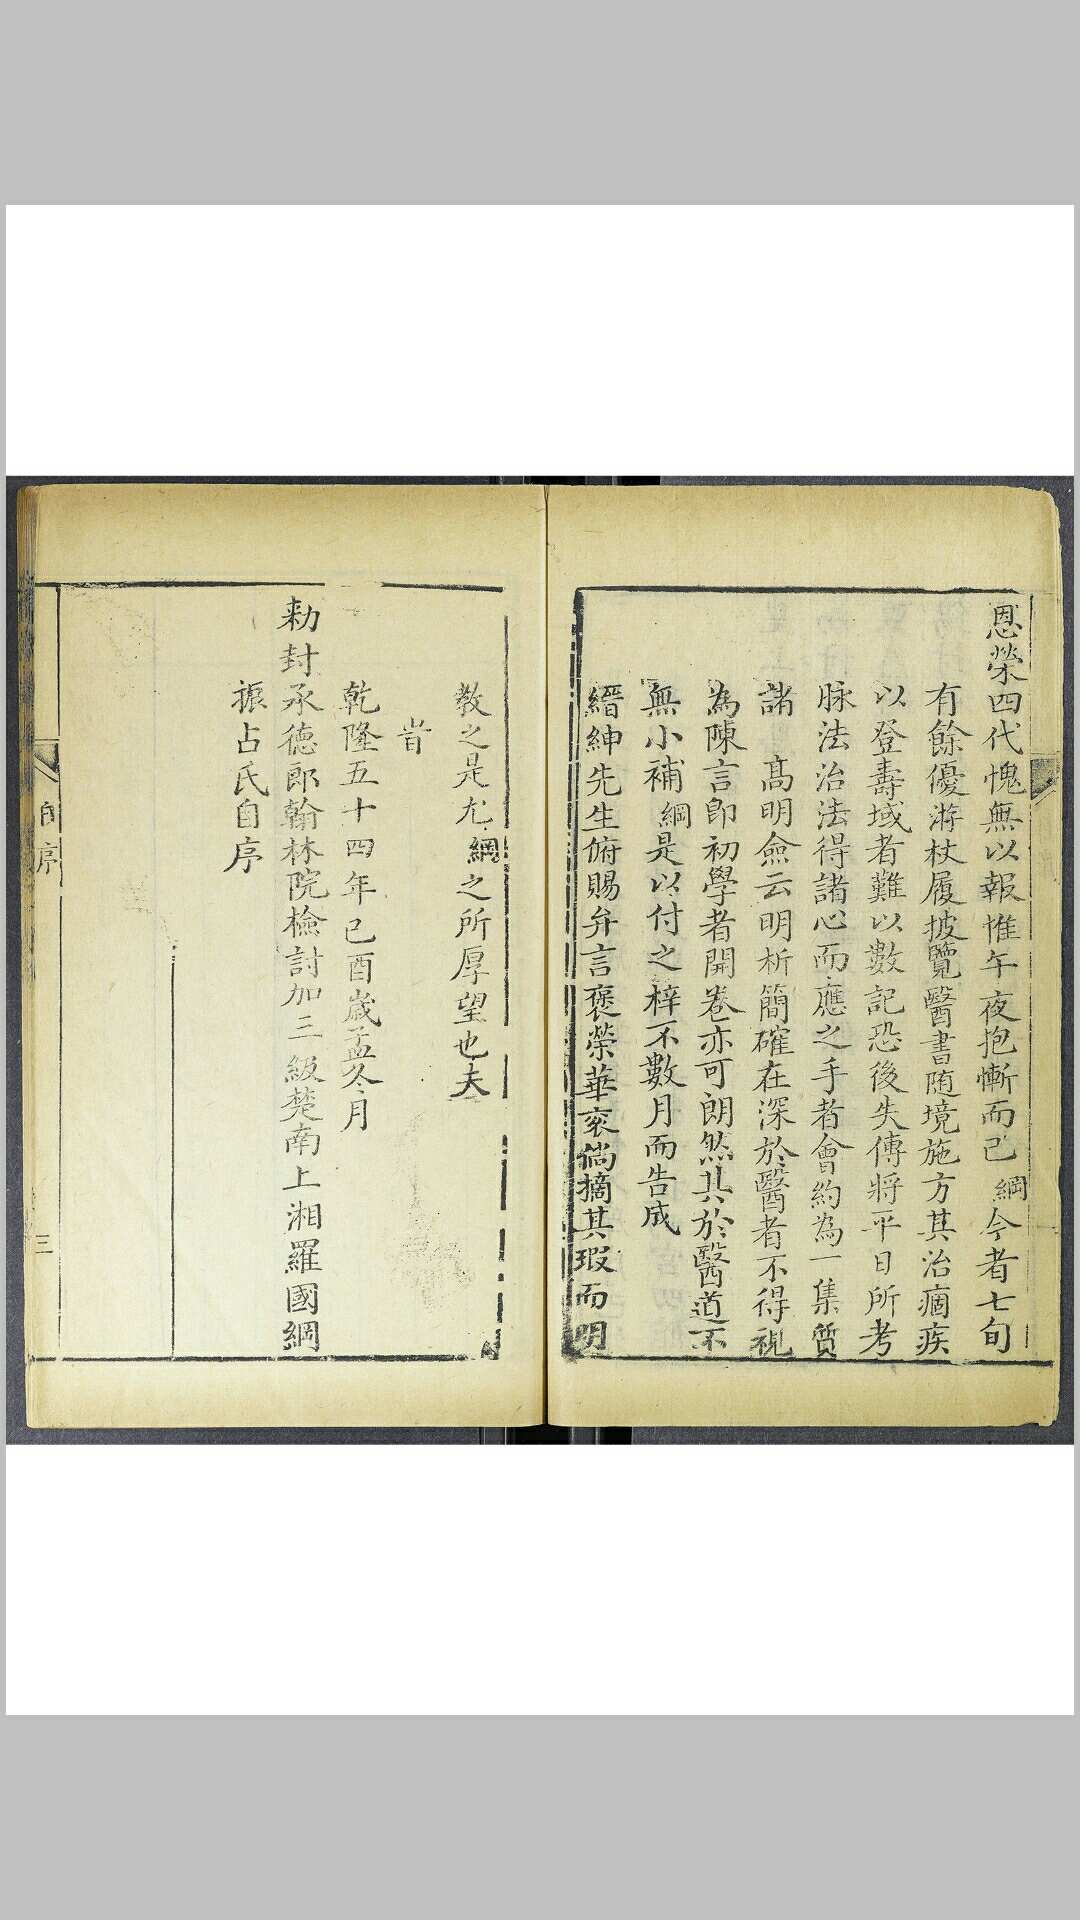 恩榮四代愧無以報惟午夜抱慚而已綱今者七旬
有餘優游杖履披覽醫書随境施方其治痼疾
以登壽域者難以數記恐後失傳將平日所考
脉法治法得諸心而應之手者會約為一集質
諸高明僉云明析簡確在深於醫者不得視
為陳言即初學者開卷亦可朗然其於醫道不
無小補綱是以付之梓不數月而告成
縉紳先生俯賜弁言褒榮華衮倘摘其瑕而明
教之是尤綱之所厚望也夫
旹
乾隆五十四年己酉歲孟冬月
勑封承德郎翰林院檢討加三級楚南上湘羅國綱
振占氏自序
自序
三